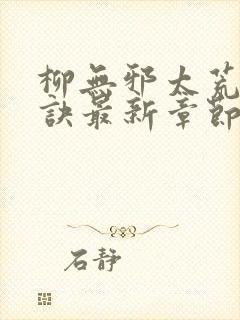 柳無邪太荒
訣最新章節
石静